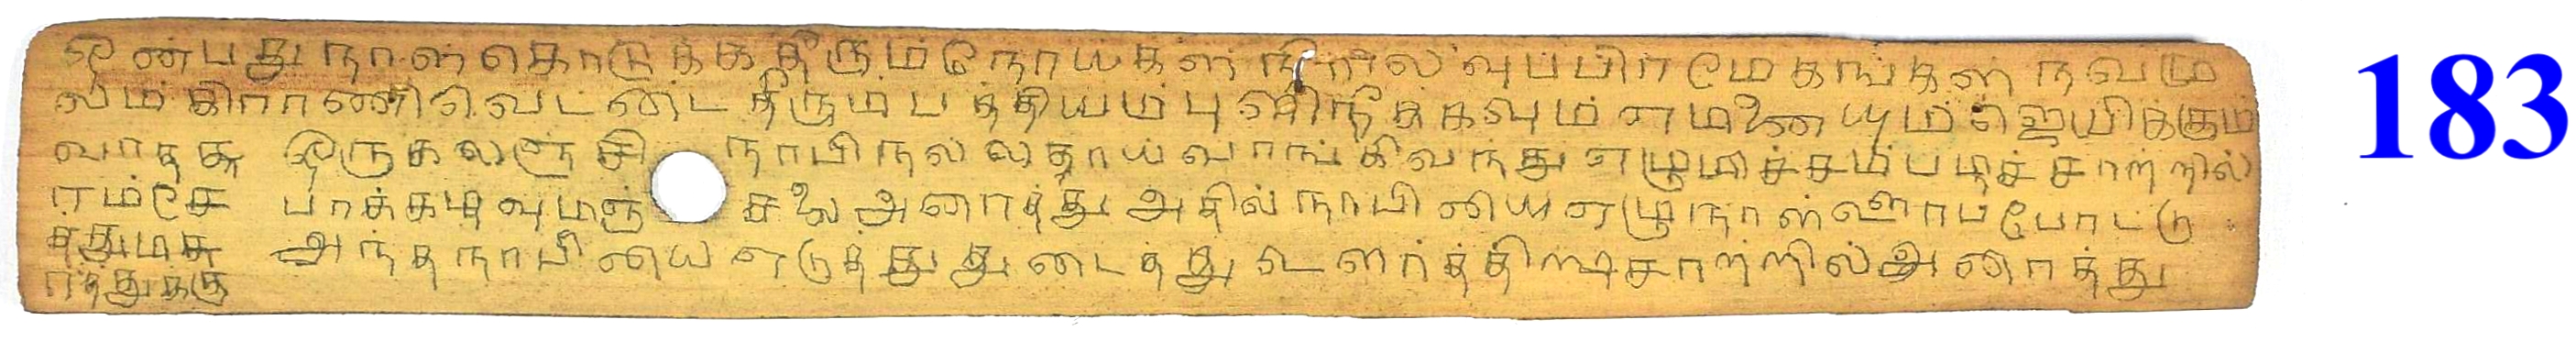 ஒன்பது நாள் கொடுக்க தீரும் நோய்கள் நீரில் வுப்பிரமேகங்கள் நவமு
லம் கிராணி வெட்டை தீரும் பத்தியம் புளி நீக்கவும் எமனையும் ஜெயிக்கும்
ஒரு கலஞ்சி நாபி நல்லதாய் வாங்கிவந்து எழுமிச்சம் படிச்சாற்றில்
பாக்கடிவுமஞ் சலை அரைத்து அதில் நாபியை எழுநாள் ஊரப்போட்டு
அந்த நாபியை எடுத்து துடைத்து உளர்த்தி சாற்றில் அரைத்து
183